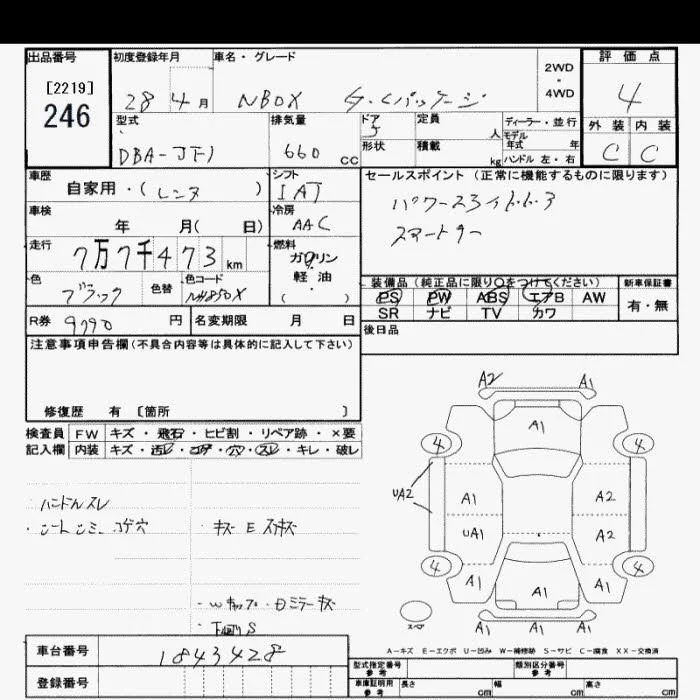 出品番号 初度登録年月 車名・グレード 評価点
[2219]
246
28年4月 NBOX G・Lパッケージ
2WD
・
4WD
4
型式 排気量 ドア 定員 ディーラー・並行 外装 内装
DBA-JF1 660 CC 5 人 モデル年式 年
C C
形状 積載 kg ハンドル 左・右
車歴 シフト セールスポイント(正常に機能するものに限ります)
自家用・(レンタ) IAT
パワースライドドア
車検 冷房
年 月(日) AAC
スマートキー
走行 燃料
7万7千473km ガソリン
・
軽油
( )
色 色替 色コード
ブラック NH850X
装備品(純正品に限り○をつけてください) 新車保証書
PS PW ABS エアB AW 有・無
SR ナビ TV カワ
R券 9790円 名変期限 月 日
後日品
注意事項申告欄(不具合内容等は具体的に記入して下さい)
修復歴 有 [箇所 ]
検査員 FW キズ・飛石・ヒビ割・リペア跡・×要
記入欄 内装 キズ・汚レ・コゲ・穴・スレ・キレ・破レ
ハンドルスレ
・シートシミ コゲ穴
キズ E スリキズ
・Wキップ・Dミラーキズ
S
A2 A1
A1
4 4
UA2
A1 A2
UA1 A2
4 4
A1 A1 A1
A1 A1 A1
A−キズ E−エクボ U−凹み W−補修跡 S−サビ C−腐食 XX−交換済
車台番号 1843428
型式指定番号 参考 類別区分番号 参考
登録番号
車庫証明用 参考 長さ cm 幅 cm 高さ cm